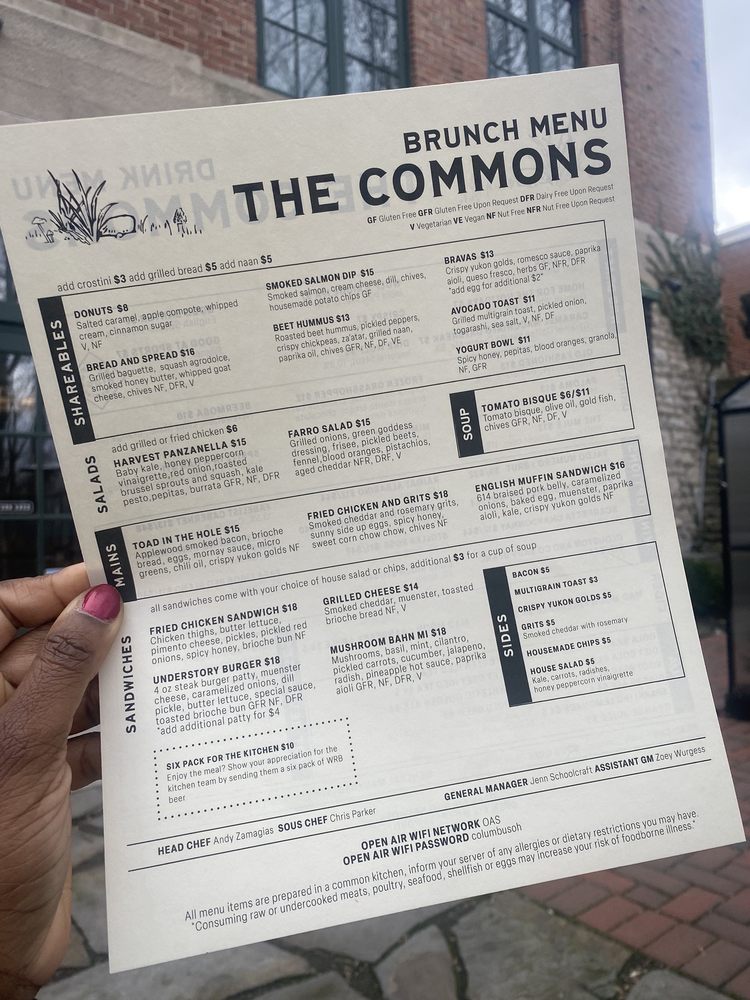 BRUNCH MENU
THE COMMONS
GF Gluten Free GFR Gluten Free Upon Request DFR Dairy Free Upon Request
V Vegetarian VE Vegan NF Nut Free NFR Nut Free Upon Request
add crostini $3 add grilled bread $5 add naan $5
SHAREABLES
DONUTS $8
Salted caramel, apple compote, whipped
cream, cinnamon sugar
V, NF
BREAD AND SPREAD $16
Grilled baguette, squash agrodoice,
smoked honey butter, whipped goat
cheese, chives NF, DFR, V
SMOKED SALMON DIP $15
Smoked salmon, cream cheese, dill, chives,
housemade potato chips GF
BEET HUMMUS $13
Roasted beet hummus, pickled peppers,
crispy chickpeas, za'atar, grilled naan,
paprika oil, chives GFR, NF, DF, VE
BRAVAS $13
Crispy yukon golds, romesco sauce, paprika
aioli, queso fresco, herbs GF, NFR, DFR
*add egg for additional $2*
AVOCADO TOAST $11
Grilled multigrain toast, pickled onion,
togarashi, sea salt, V, NF, DF
YOGURT BOWL $11
Spicy honey, pepitas, blood oranges, granola,
NF, GFR
SALADS
add grilled or fried chicken $6
HARVEST PANZANELLA $15
Baby kale, honey peppercorn
vinaigrette,red onion,roasted
brussel sprouts and squash, kale
pesto,pepitas, burrata GFR, NF, DFR
FARRO SALAD $15
Grilled onions, green goddess
dressing, frisee, pickled beets,
fennel,blood oranges, pistachios,
aged cheddar NFR, DRF, V
SOUP
TOMATO BISQUE $6/$11
Tomato bisque, olive oil, gold fish,
chives GFR, NF, DF, V
MAINS
TOAD IN THE HOLE $15
Applewood smoked bacon, brioche
bread, eggs, mornay sauce, micro
greens, chili oil, crispy yukon golds NF
FRIED CHICKEN AND GRITS $18
Smoked cheddar and rosemary grits,
sunny side up eggs, spicy honey,
sweet corn chow chow, chives NF
ENGLISH MUFFIN SANDWICH $16
614 braised pork belly, caramelized
onions, baked egg, muenster, paprika
aioli, kale, crispy yukon golds NF
SANDWICHES
all sandwiches come with your choice of house salad or chips, additional $3 for a cup of soup
FRIED CHICKEN SANDWICH $18
Chicken thighs, butter lettuce,
pimento cheese, pickles, pickled red
onions, spicy honey, brioche bun NF
UNDERSTORY BURGER $18
4 oz steak burger patty, muenster
cheese, caramelized onions, dill
pickle, butter lettuce, special sauce,
toasted brioche bun GFR NF, DFR
*add additional patty for $4
GRILLED CHEESE $14
Smoked cheddar, muenster, toasted
brioche bread NF, V
MUSHROOM BAHN MI $18
Mushrooms, basil, mint, cilantro,
pickled carrots, cucumber, jalapeno,
radish, pineapple hot sauce, paprika
aioli GFR, NF, DFR, V
SIDES
BACON $5
MULTIGRAIN TOAST $3
CRISPY YUKON GOLDS $5
GRITS $5
Smoked cheddar with rosemary
HOUSEMADE CHIPS $5
HOUSE SALAD $5
Kale, carrots, radishes,
honey peppercorn vinaigrette
SIX PACK FOR THE KITCHEN $10
Enjoy the meal? Show your appreciation for the
kitchen team by sending them a six pack of WRB
beer
HEAD CHEF Andy Zamagias SOUS CHEF Chris Parker
GENERAL MANAGER Jenn Schoolcraft ASSISTANT GM Zoey Wurgess
OPEN AIR WIFI NETWORK OAS
OPEN AIR WIFI PASSWORD columbusoh
All menu items are prepared in a common kitchen, inform your server of any allergies or dietary restrictions you may have.
*Consuming raw or undercooked meats, poultry, seafood, shellfish or eggs may increase your risk of foodborne illness.*